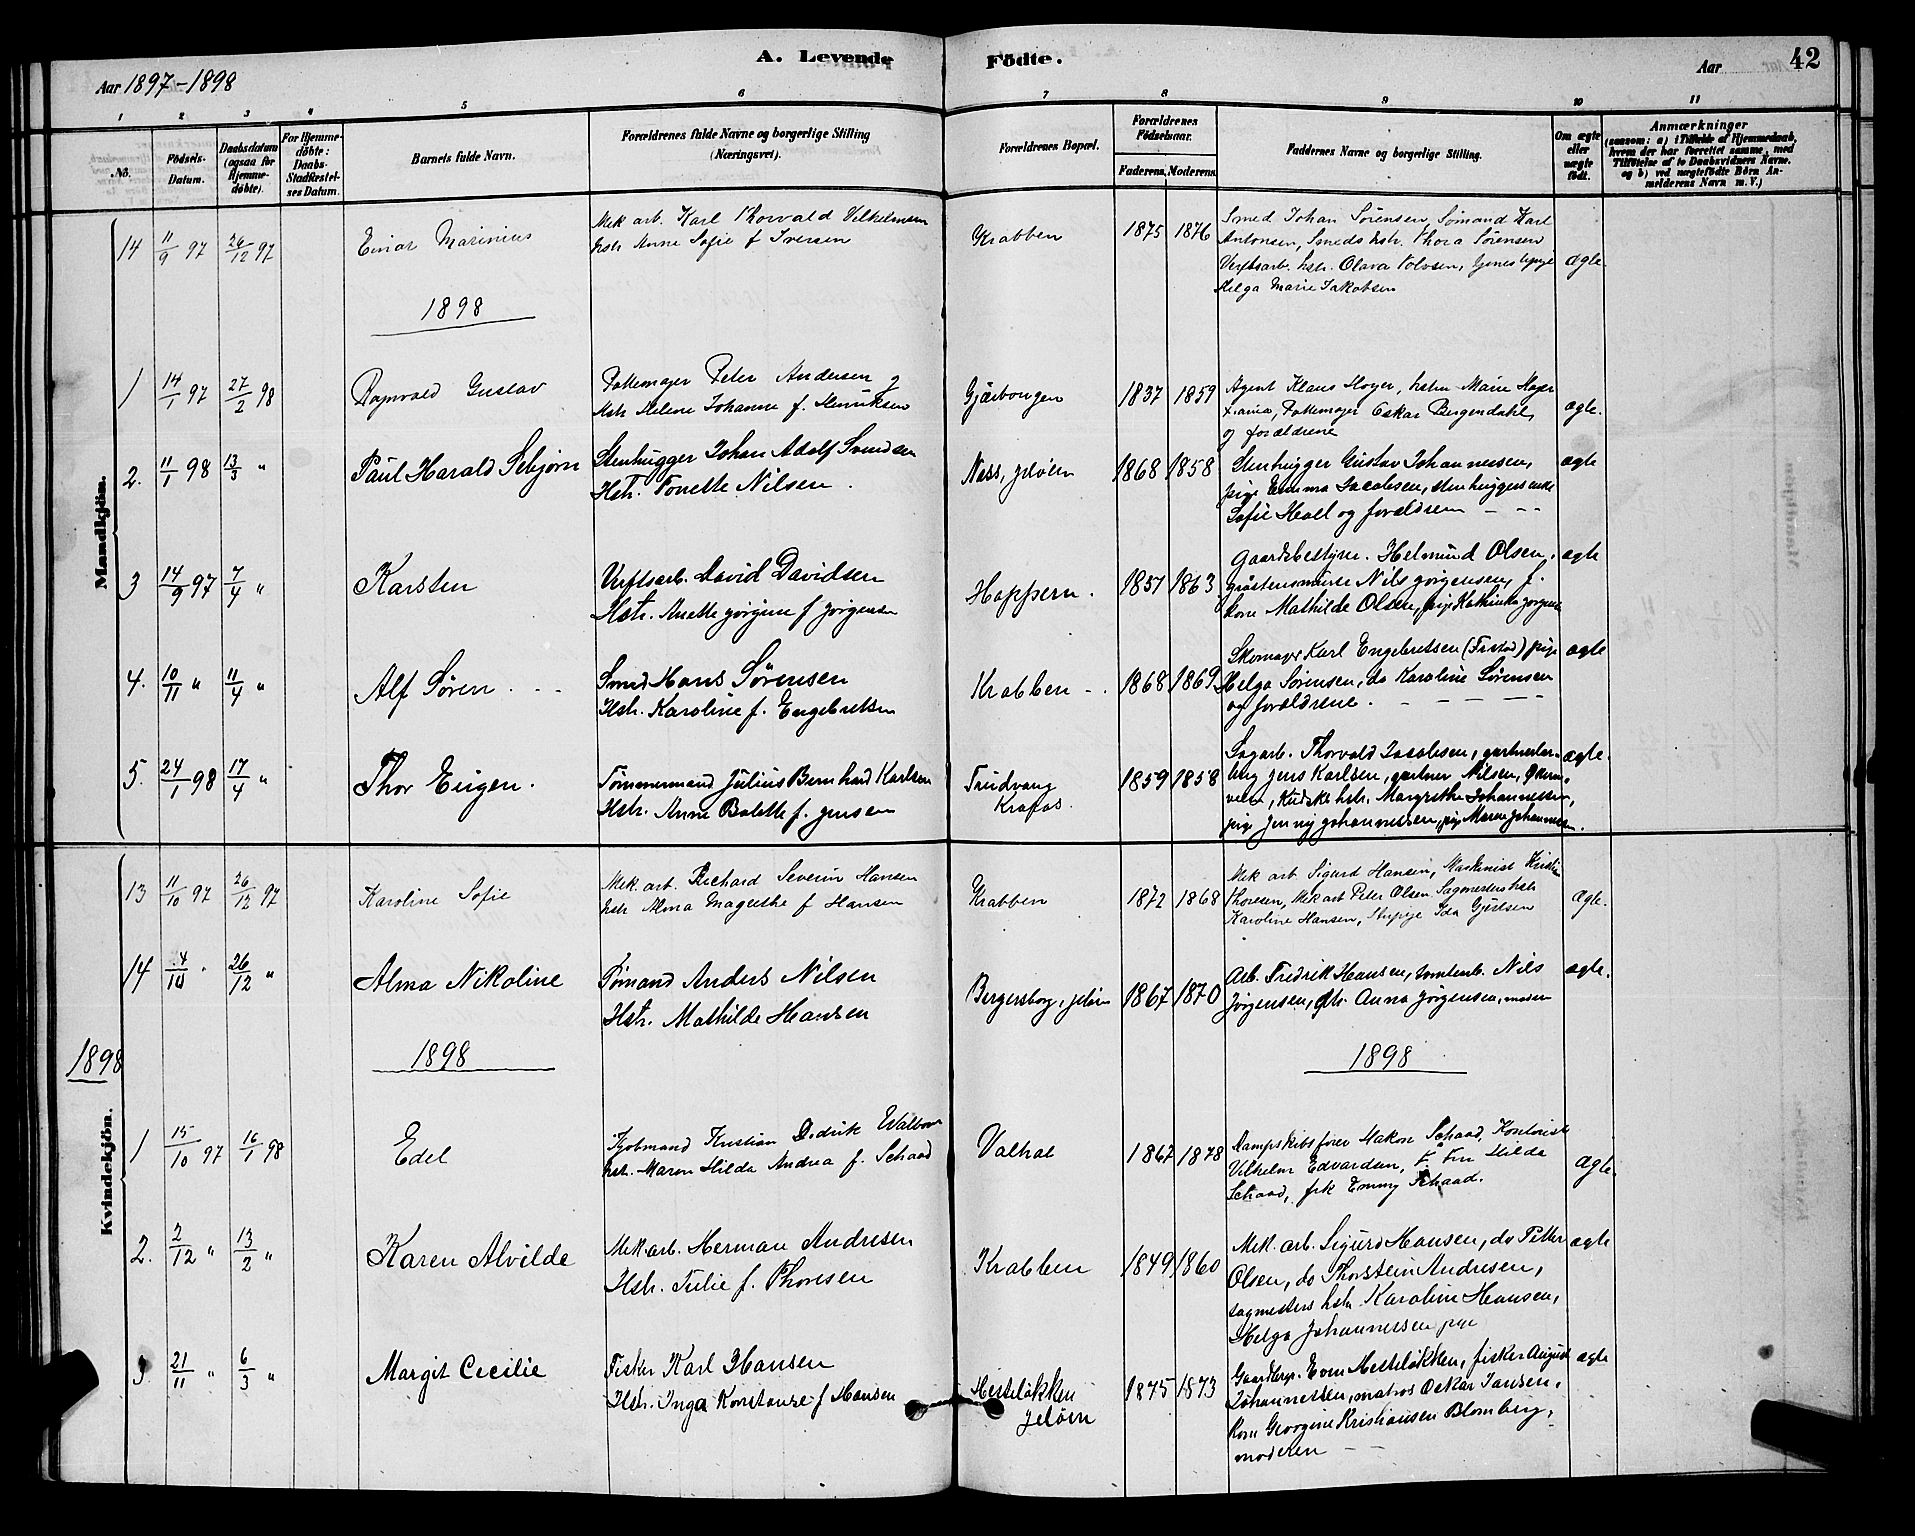 A. Levende Födte.
Aar 1897-1898
Aar 42
1 2 3 4 5 6 7 8 9 10 11
No.
Födsels-Datum.
Daabsdatum (ogsaa for Hjemme-döbte).
For Hjemme-döbte: Daabs-Stadfæstel-ses Datum.
Barnets fulde Navn.
Forældrenes fulde Navne og borgerlige Stilling (Næringsvei).
Forældrenes Bopæl.
Forældrenes Födselsaar.
Faderens. Moderens.
Faddernes Navne og borgerlige Stilling.
Om ægte eller uægte födt.
Anmærkninger
(saasom: a) i Tilfælde af Hjemmedaab, hvem der har forrettet samme, med Tilföielse af to Daabsvidners Navne. og b) ved uægtefödte Börn An-melderens Navn m. V.)
Mandkjön.
14 11/9 97 26/12 97 Einar Marinius
Mek arb. Karl Thorvald Vilhelmsen
hstr Anne Sofie f Iversen
Krabben 1875 1876
Smed Johan Sørensen, Sømand Karl
Antonsen, Smeds hstr. Thora Sørensen
Verftsarb. hstr. Olava Tolvsen,
Helga Marie Jakobsen
ægte.
1898
1 14/1 97 27/2 98 Ragnvald Gustav
Pottemager Peter Andersen og
Hstr Helene Johanne f. Henriksen
Gjærbongen 1837 1859
Agent Klaus Høyer, hstru Marie Høyer
Pottemager Oskar Bergendahl,
og forældrene
ægte.
2. 11/1 98 13/3 " Paul Harald Sebjørn
Stenhugger Johan Adolf Svendsen
Hstr. Tonette Nilsen.
Næss, Jeløen 1868 1858
Stenhugger Gustav Johannessen,
pige Emma Jacobsen, stenhuggerenke
Sofie Hoel og forældrene - - -
ægte
3 14/9 97 7/4 " Karsten
Verftsarb. David Davidsen
Hstr. Anette Jørgine f Jørgensen
Hoppern. 1857 1863
Gaardsbestyrer. Helmund Olsen,
Nils Jørgensen, f.
kone Mathilde Olsen, pige Kathinka Jørgens
ægte
4. 10/11 " 11/4 " Alf Søren. - -
Smed Hans Sørensen
Hstr. Karoline f. Engebretsen
Krabben - . 1868 1869
Skomager Karl Engebretsen (Frstad) pige
Helga Sørensen, do Karoline Sørensen
og forældrene. - - - - -
ægte
5. 24/1 98 17/4 " Thor Eugen.
Tømmermand Julius Bernhard Karlsen
Hstr. Anne Bolette f. Jensen
Trudvang
Krafos.
1859 1858
Sagarb. Thorvald Jacobsen, gartnerlær-
ling Jens Karlsen, gartner Nilsen,
Kudsks hstr. Margrethe Johannessen,
pige Jenny Johannessen, pige Maren Johannessen.
ægte.
Kvindekjön.
13 11/10 97 26/12 97 Karoline Sofie
Mek. arb. Richard Severin Hansen
hstr Alma Magrethe f Hansen
Krabben 1872 1868
Mek arb Sigurd Hansen, Maskinist Kristian
Thoresen, Mek arb Peter Olsen Sagmesters hstr
Karoline Hansen, Ida Gjertsen
ægte.
14 4/10 " 26/12 " Alma Nikoline
Sømand Anders Nilsen
Hstr. Mathilde Hansen
Bergersborg, Jeløen 1867 1870
Arb. Fredrik Hansen, tomtearb. Nils
Jørgensen, Anna Jørgensen, moderen
ægte.
1898
1898
1898
1 15/10 97 16/1 98 Edel
Kjøbmand Kristian Didrik Walboe
hst. Maren Hilda Andrea f. Schaad
Valhal 1867 1878
Dampskibsfører Hakon Schaad, Kontorist
Vilhelm Edvardsen, Fru Hilda
Schaad, frk Emmy Schaad.
ægte.
2. 2/12 " 13/2 " Karen Alvilde
Mek arb. Herman Andresen
Hstr. Julie f. Thoresen
Krabben 1849 1860
Mek. arb. Sigurd Hansen, do Petter
Olsen, do Thorstein Andresen,
sagmesters hstr Karoline Hansen,
Helga Johannessen pige
ægte
3. 21/11 " 6/3 " Margit Cecilie
Fisker Karl Hansen
Hstr. Inga Konstanse f Hansen
Hesteløkken
Jeløen
1875 1873
Gaardbrgr. Even Hesteløkken, fisker August
Johannessen, matros Oskar Jansen,
Kone Georgine Kristiansen Blomberg,
moderen - -
ægte